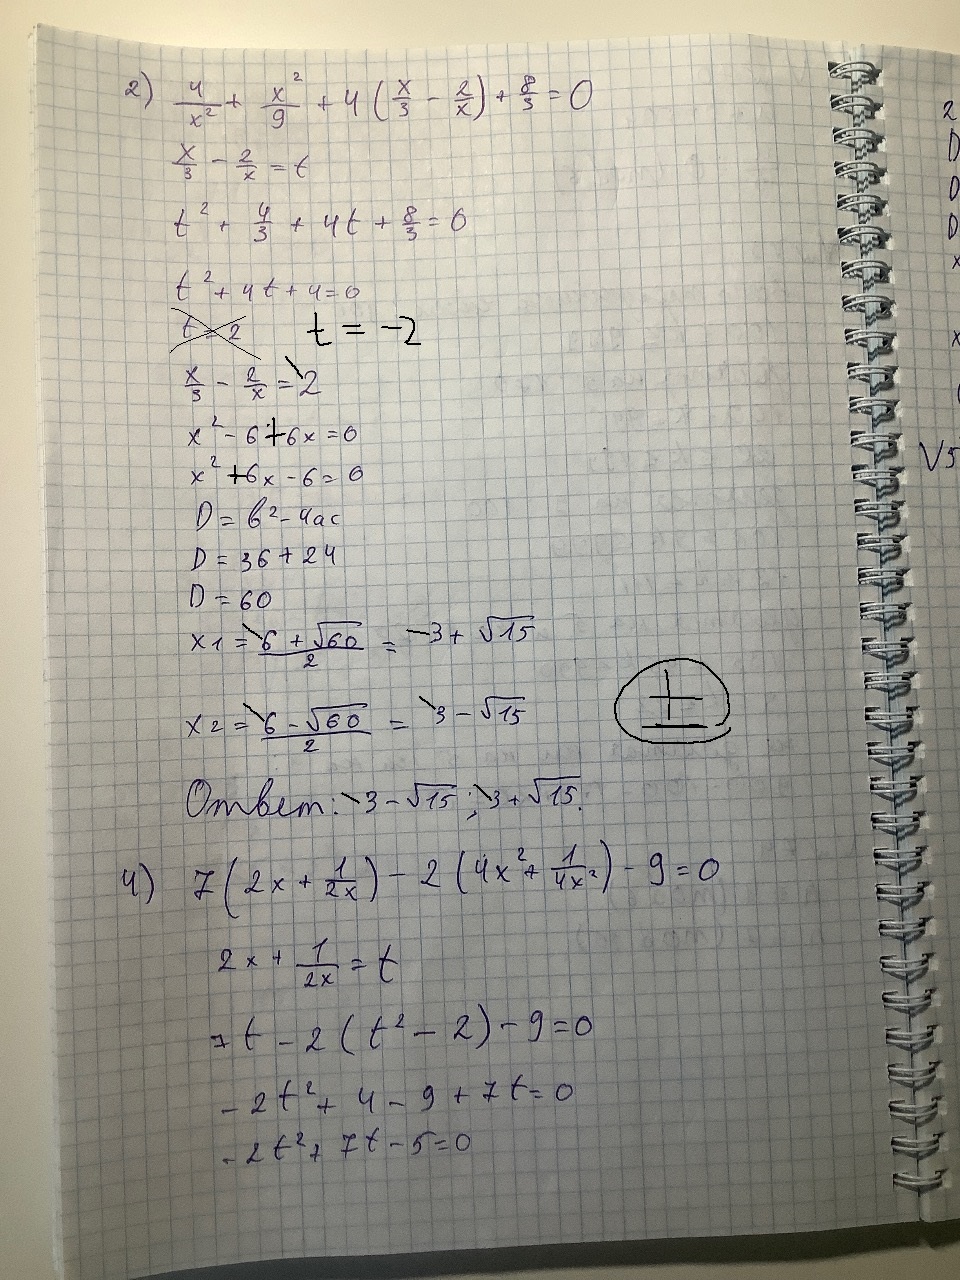 2) 4/x² + x²/9 + 4(x/3 - 2/x) + 8/3 = 0
x/3 - 2/x = t
t² + 4/3 + 4t + 8/3 = 0
t² + 4t + 4 = 0
t = 2 t = -2
x/3 - 2/x = -2
x² - 6 + 6x = 0
x² + 6x - 6 = 0
D = b² - 4ac
D = 36 + 24
D = 60
x1 = (-6 + √60)/2 = -3 + √15
x2 = (-6 - √60)/2 = -3 - √15
±
Ответ: -3 - √15; -3 + √15.
4) 7(2x + 1/2x) - 2(4x² + 1/4x²) - 9 = 0
2x + 1/2x = t
7t - 2(t² - 2) - 9 = 0
- 2t² + 4 - 9 + 7t = 0
- 2t² + 7t - 5 = 0
2
D
D
D
x
x
√5